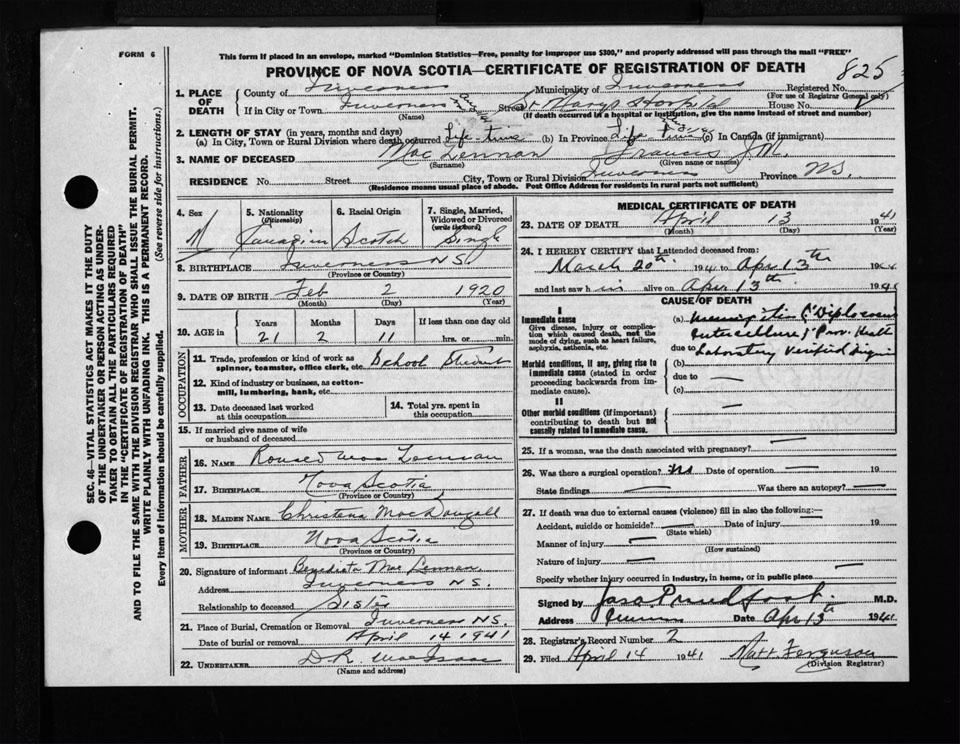 FORM 6
This form if placed in an envelope, marked "Dominion Statistics—Free, penalty for improper use $300," and properly addressed will pass through the mail "FREE"
PROVINCE OF NOVA SCOTIA—CERTIFICATE OF REGISTRATION OF DEATH
825
1. PLACE OF DEATH
County of Inverness Municipality of Inverness Registered No.
(For use of Registrar General only)
If in City or Town Inverness Street St Marys Hospital House No.
(Name) (If death occurred in a hospital or institution, give the name instead of street and number)
2. LENGTH OF STAY (in years, months and days)
(a) In City, Town or Rural Division where death occurred life-time (b) In Province life time (c) In Canada (if immigrant)
3. NAME OF DECEASED MacLennan Francis J.M.
(Surname) (Given name or names)
RESIDENCE No. Street City, Town or Rural Division Inverness Province N.S.
(Residence means usual place of abode. Post Office Address for residents in rural parts not sufficient)
4. Sex M
5. Nationality (Citizenship) Canadian
6. Racial Origin Scotch
7. Single, Married, Widowed or Divorced (write the word) Single
8. BIRTHPLACE Inverness N.S.
(Province or Country)
9. DATE OF BIRTH Feb 2 1920
(Month) (Day) (Year)
10. AGE in Years Months Days If less than one day old
21 2 11 hrs. or min.
OCCUPATION
11. Trade, profession or kind of work as spinner, teamster, office clerk, etc. School Student
12. Kind of industry or business, as cotton-mill, lumbering, bank, etc.
13. Date deceased last worked at this occupation
14. Total yrs. spent in this occupation
15. If married give name of wife or husband of deceased
FATHER
16. NAME MacLennan
17. BIRTHPLACE Nova Scotia
(Province or Country)
MOTHER
18. MAIDEN NAME Christena MacDougall
19. BIRTHPLACE Nova Scotia
(Province or Country)
20. Signature of informant Benedicta MacLennan
Address Inverness N.S.
Relationship to deceased Sister
21. Place of Burial, Cremation or Removal Inverness N.S.
Date of burial or removal April 14 1941
22. UNDERTAKER D.R. MacIsaac
(Name and address)
MEDICAL CERTIFICATE OF DEATH
23. DATE OF DEATH April 13 1941
(Month) (Day) (Year)
24. I HEREBY CERTIFY that I attended deceased from:
March 20th 1941 to Apr 13th 1941
and last saw h im alive on Apr 13th 1941
CAUSE OF DEATH
I
Immediate cause
Give disease, injury or complication which caused death, not the mode of dying, such as heart failure, asphyxia, asthenia, etc.
(a) Meningitis
due to Laboratory Verified
Morbid conditions, if any, giving rise to immediate cause (stated in order proceeding backwards from immediate cause).
(b)
due to
(c)
II
Other morbid conditions (if important) contributing to death but not causally related to immediate cause.
25. If a woman, was the death associated with pregnancy?
26. Was there a surgical operation? No Date of operation 19
State findings Was there an autopsy?
27. If death was due to external causes (violence) fill in also the following:
Accident, suicide or homicide? Date of injury 19
(State which)
Manner of injury
(How sustained)
Nature of injury
Specify whether injury occurred in industry, in home, or in public place
Signed by Jas. Proudfoot M.D.
Address Date Apr 13th 1941
28. Registrar's Record Number 2
29. Filed April 14 1941 Matt. Ferguson
(Division Registrar)
SEC. 46—VITAL STATISTICS ACT MAKES IT THE DUTY
OF THE UNDERTAKER OR PERSON ACTING AS UNDER-
TAKER TO OBTAIN ALL THE PARTICULARS REQUIRED
IN THE "CERTIFICATE OF REGISTRATION OF DEATH"
AND TO FILE THE SAME WITH THE DIVISION REGISTRAR WHO SHALL ISSUE THE BURIAL PERMIT.
WRITE PLAINLY WITH UNFADING INK. THIS IS A PERMANENT RECORD.
Every item of information should be carefully supplied. (See reverse side for instructions.)